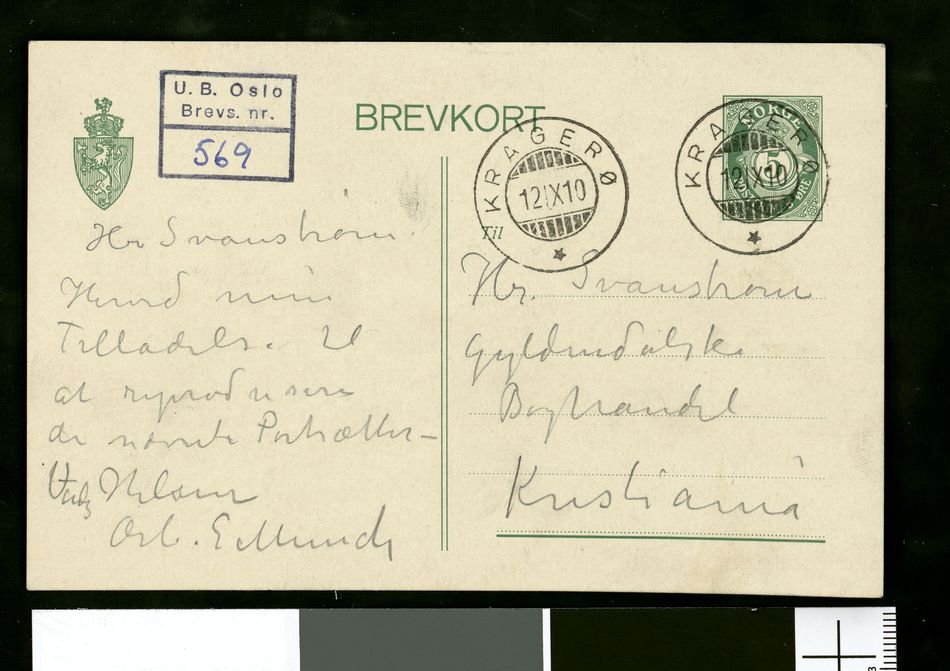 U. B. Oslo
Brevs. nr.
569
BREVKORT
NORGE
5
KRAGERØ
12 IX 10
KRAGERØ
12 IX 10
Til
Hr Svanstrøm.
Herved min
Tilladelse til
at reproducere
de nævnte Portrætter–
Hilsen
Erb. E Munch
Hr. Svanstrøm
Gyldendalske
Boghandel
Kristiania